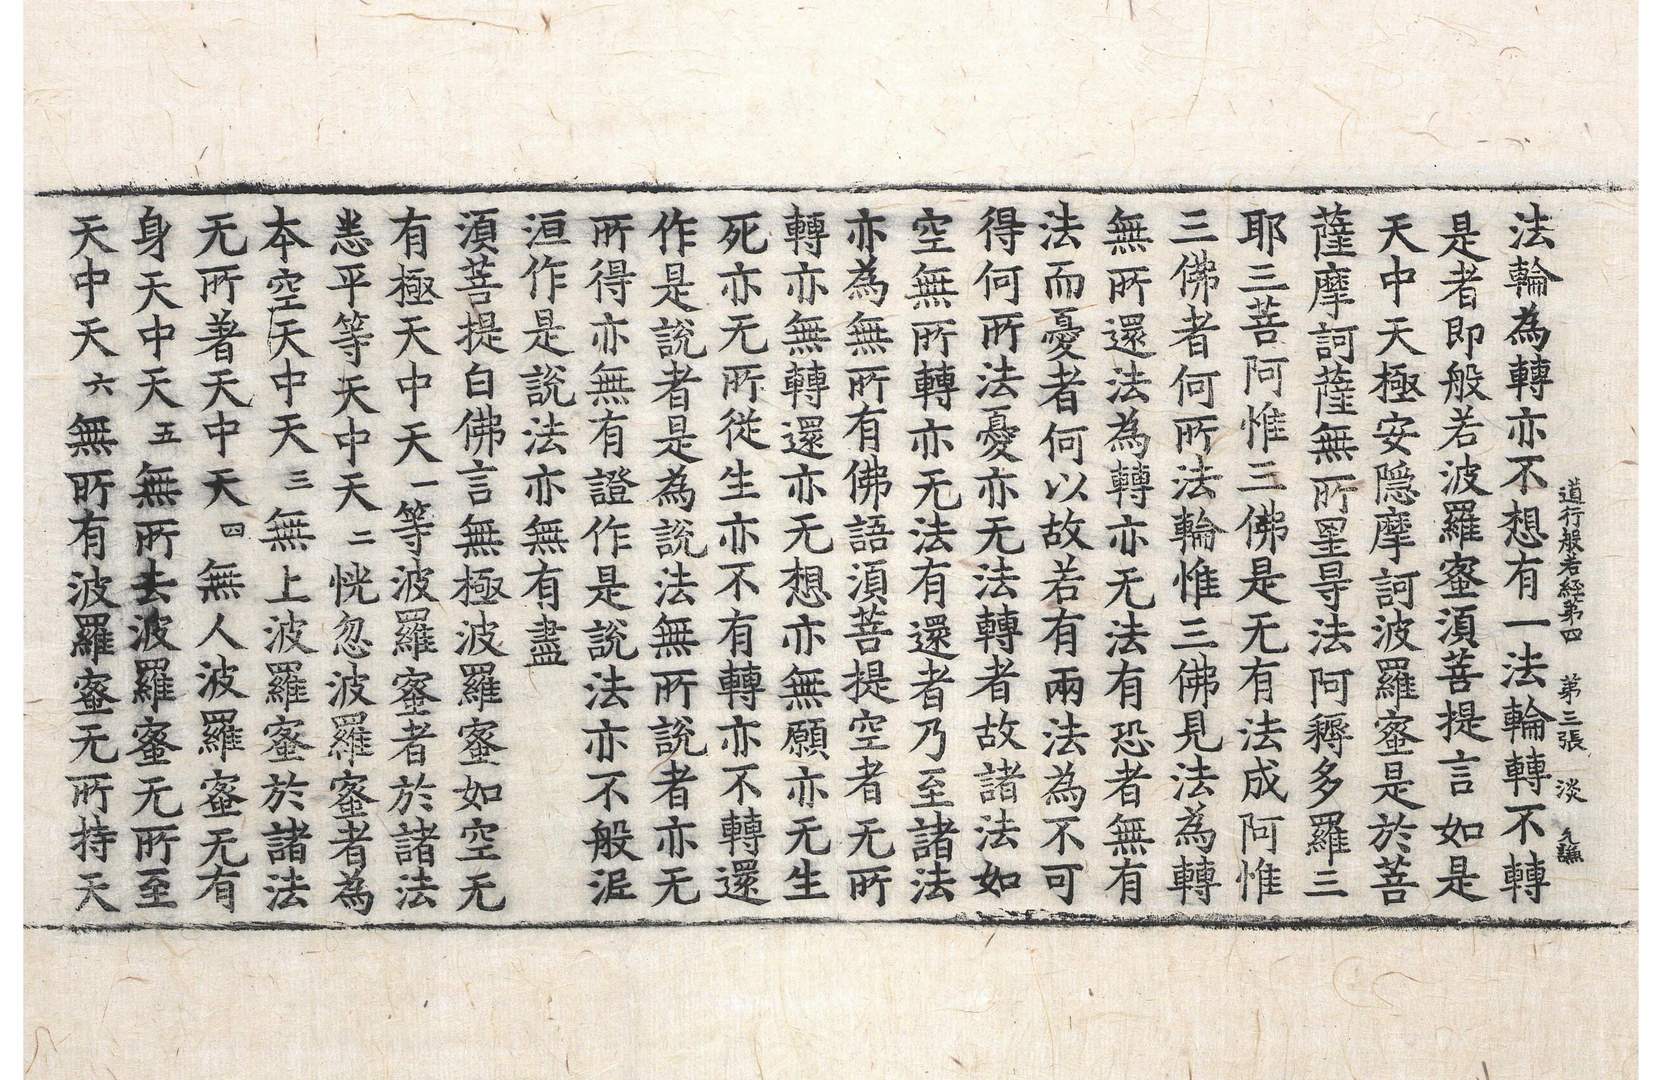 道行般若経第四　第三張　淡
法輪為轉亦不想有一法輪轉不轉
是者即般若波羅蜜須菩提言如是
天中天極安隱摩訶波羅蜜是於菩
薩摩訶薩無所罣㝵法阿耨多羅三
耶三菩阿惟三佛是无有法成阿惟
三佛者何所法輪惟三佛見法為轉
無所還法為轉亦无法有恐者無有
法而憂者何以故若有兩法為不可
得何所法憂亦无法轉者故諸法如
空無所轉亦无法有還者乃至諸法
亦為無所有佛語須菩提空者无所
轉亦無轉還亦无想亦無願亦无生
死亦无所從生亦不有轉亦不轉還
作是說者是為說法無所說者亦无
所得亦無有證作是說法亦不般泥
洹作是說法亦無有盡
須菩提白佛言無極波羅蜜如空无
有極天中天一等波羅蜜者於諸法
恙平等天中天二恍忽波羅蜜者為
本空天中天三無上波羅蜜於諸法
无所著天中天四無人波羅蜜无有
身天中天五無所去波羅蜜无所至
天中天六無所有波羅蜜无所持天